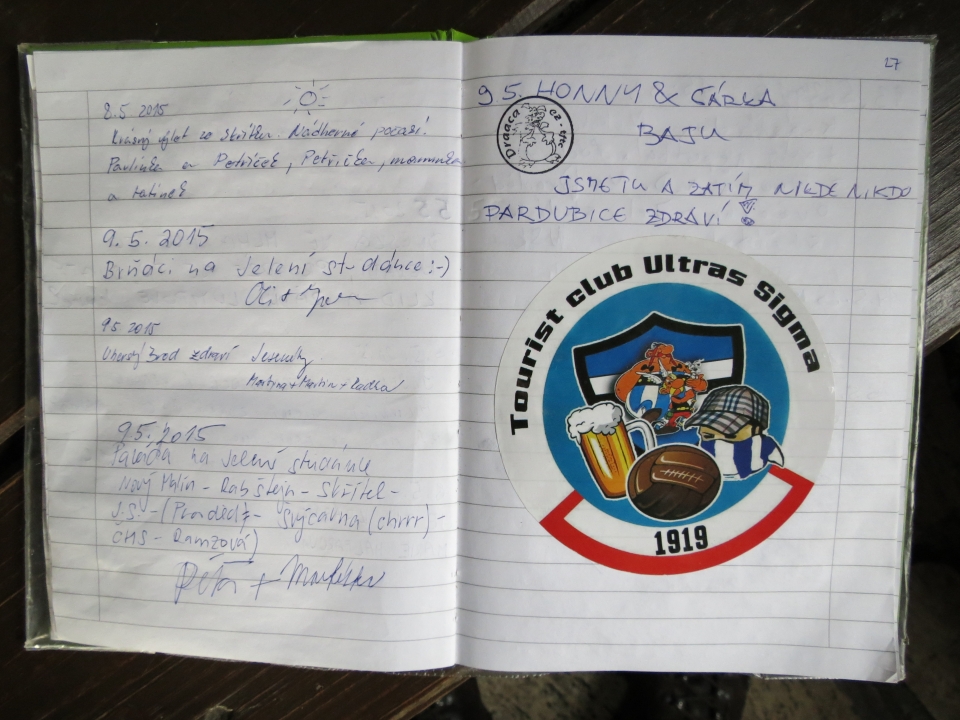 8.5 2015
Krásný výlet ze Skřítku. Nádherné počasí!
Pavlínka a Petříček, Petřička, maminka
a tatínek
9.5.2015
Brňáci na Jelení studánce :-)
95 2015
Uherský Brod zdraví Jeseníky
Martina + Martin + Radka
9.5.2015
Paráda na Jelení studánce
Nový Malín - Rabštejn - Skřítek -
J.S. - (Praděd) - Švýcárna (chrrr) -
ČHS - Ramzová)
Petra +
27
9 5. HONNY & ŠÁRKA
BAJU
JSME TU A ZATÍM NIKDE NIKDO
PARDUBICE ZDRAVÍ!
Tourist club Ultras Sigma
1919